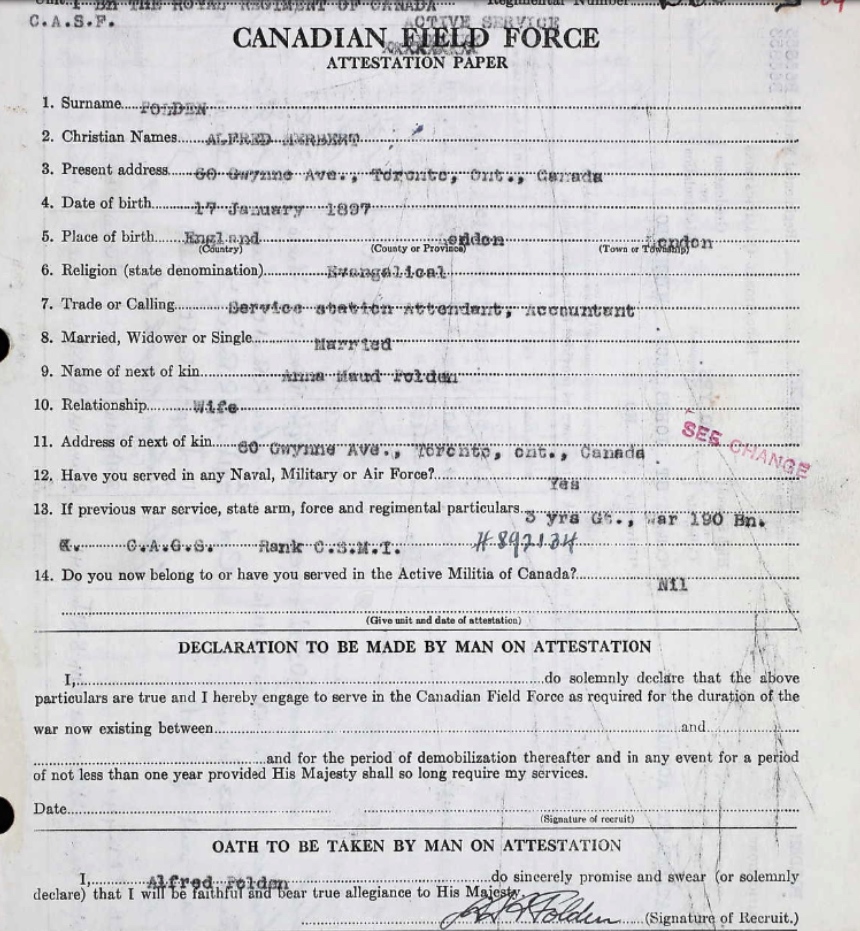 Unit 1 BN THE ROYAL REGIMENT OF CANADA Regimental Number
C.A.S.F. ACTIVE SERVICE
CANADIAN FIELD FORCE
ATTESTATION PAPER
1. Surname POLDEN
2. Christian Names ALFRED HERBERT
3. Present address 60 Gwynne Ave., Toronto, Ont., Canada
4. Date of birth 17 January 1897
5. Place of birth England London
(Country) (County or Province) (Town or Township)
6. Religion (state denomination) Evangelical
7. Trade or Calling Service station Attendant, Accountant
8. Married, Widower or Single Married
9. Name of next of kin Anna Maud Polden
10. Relationship Wife
11. Address of next of kin 60 Gwynne Ave., Toronto, ont., Canada
SEE CHANGE
12. Have you served in any Naval, Military or Air Force? Yes
13. If previous war service, state arm, force and regimental particulars 3 yrs Gt., War 190 Bn.
C.A.G.S. Rank C.S.M.I.
14. Do you now belong to or have you served in the Active Militia of Canada? Nil
(Give unit and date of attestation)
DECLARATION TO BE MADE BY MAN ON ATTESTATION
I, do solemnly declare that the above
particulars are true and I hereby engage to serve in the Canadian Field Force as required for the duration of the
war now existing between and
and for the period of demobilization thereafter and in any event for a period
of not less than one year provided His Majesty shall so long require my services.
Date
(Signature of recruit)
OATH TO BE TAKEN BY MAN ON ATTESTATION
I, Alfred Polden do sincerely promise and swear (or solemnly
declare) that I will be faithful and bear true allegiance to His Majesty.
Polden (Signature of Recruit.)